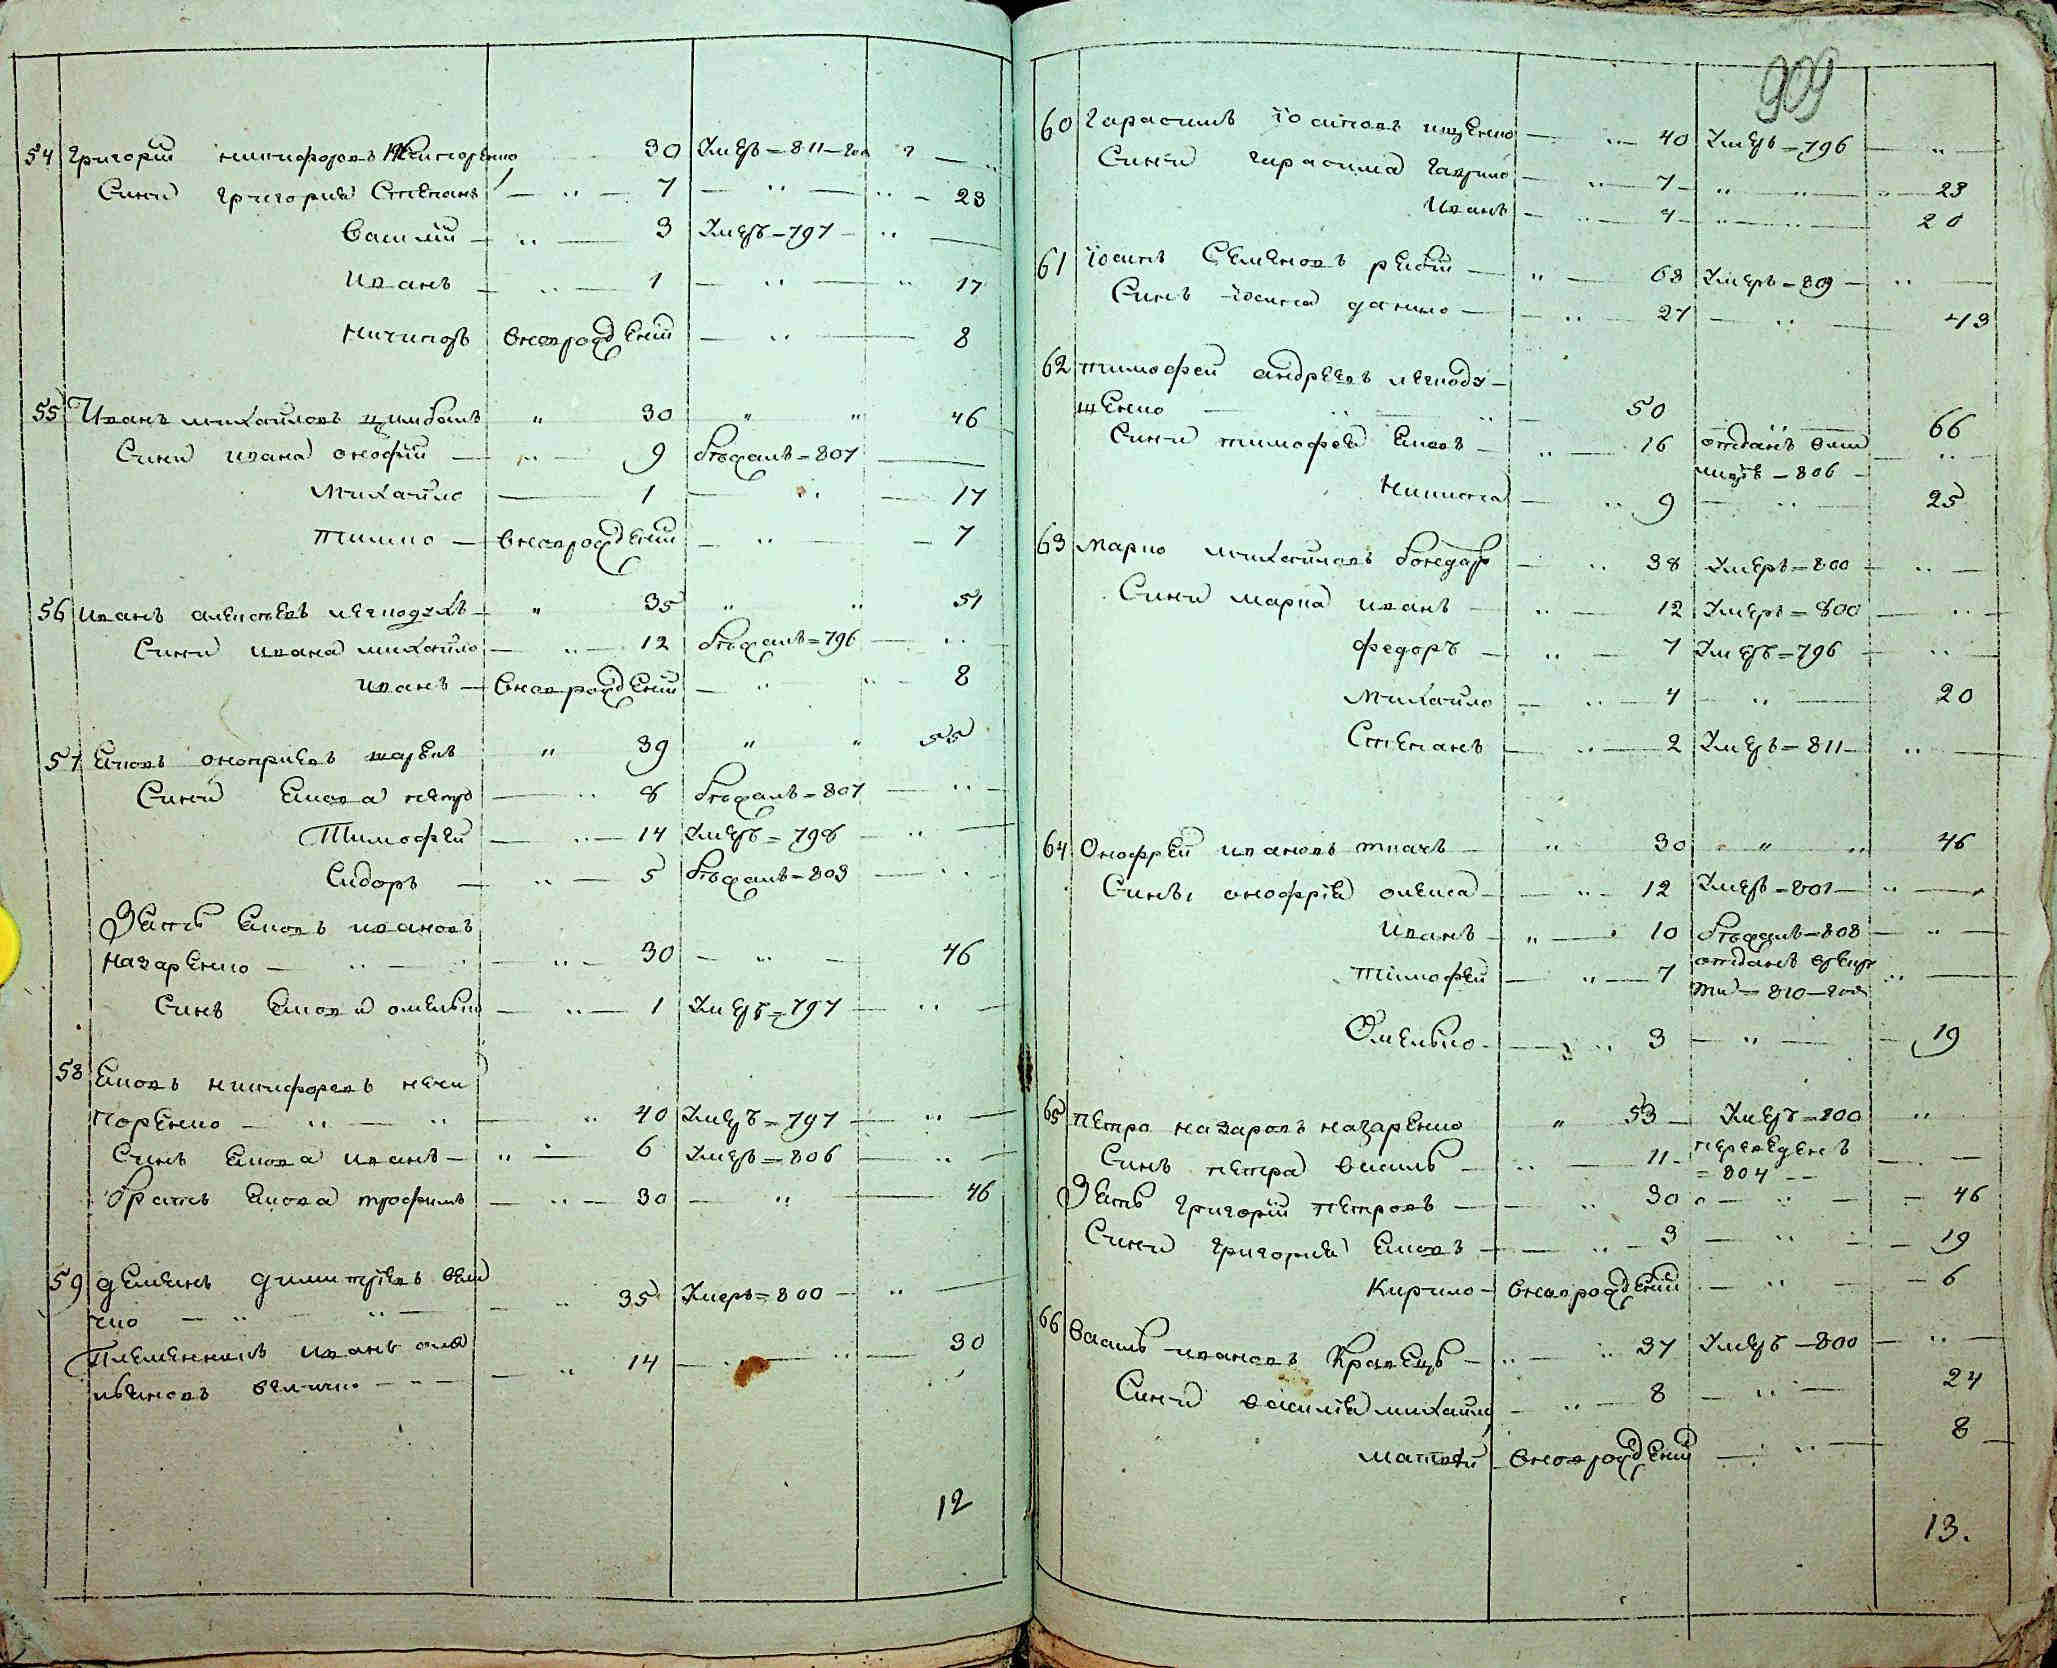 54 Григорій никифоровъ 30 Умеръ = 811 = год
Сини григорія Степанъ 7 23
Василій 3 Умеръ = 797
Иванъ 1 17
Ничипоръ вновророжденій 8
55 Иванъ михайловъ цимбалъ 30 46
Сини ивана онофрій 9 бѣжалъ = 807
Михайло 1 17
Тишко вновророжденій 7
56 иванъ алексѣевъ легкодухъ 35 51
Сини ивана михайло 12 бѣжалъ = 796
иванъ вновророжденій 8
57 Яковъ оноприевъ 39 55
Сини Якова петро 8 бѣжалъ = 807
Тимофей 14 Умеръ = 798
Сидоръ 5 бѣжалъ = 803
Зять Яковъ ивановъ
назаренко 30 46
Синъ Якова омелько 1 Умеръ = 797
58 Яковъ никифоровъ ничи
поренко 40 Умеръ = 797
Синъ Якова иванъ 6 Умеръ = 806
братъ Якова трофимъ 30 46
59 демянъ димитріевъ вели
чко 35 Умеръ = 800
Племенникъ иванъ оме
льяновъ величко 14 30
12
909
60 Гарасимъ іосиповъ ищенко 40 Умеръ = 796
Сини гарасима гаврило 7 23
иванъ 4 20
61 іосипъ Семеновъ 68 Умеръ = 809
Синъ іосипа данило 27 43
62 тимофей андреевъ легкоду
шенко 50 66
Сини тимофея Яковъ 16 отданъ вми
лицію = 806
Никита 9 25
63 марко михайловъ бондарь 38 Умеръ = 800
Сини марка иванъ 12 Умеръ = 800
федоръ 7 Умеръ = 796
Михайло 4 20
Степанъ 2 Умеръ = 811
64 Онофрей ивановъ ткачъ 30 46
Сины онофрія олекса 12 Умеръ = 801
Иванъ 10 бѣжалъ = 808
Тимофей 7 отданъ врекру
ти = 810 = год
Омелько 3 19
65 петро назаровъ назаренко 53 Умеръ = 800
Синъ петра василь 11 переведенъ
= 804
Зять григорій петровъ 30 46
Сини григорія Яковъ 3 19
Кирило вновророжденій 6
66 Василь ивановъ Кравецъ 37 Умеръ = 800
Сини василія михайло 8 24
матвѣй вновророжденій 8
13.